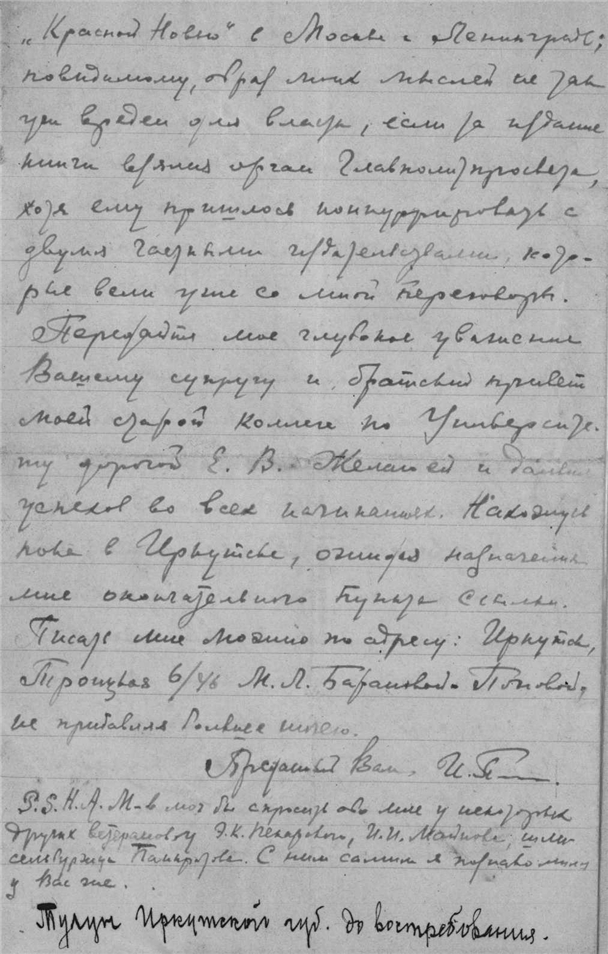 „Красной Новью“ в Москве и Ленинграде;
повидимому, образ моих мыслей не так
уж вреден для власти, если за издание
книги взялся орган Главполитпросвета,
хотя ему пришлось конкуррировать с
двумя частными издательствами, кото-
рые вели уже со мной переговоры.
Передайте мое глубокое уважение
Вашему супругу и братский привет
моей старой коллеге по Университе-
ту дорогой Е. В. и
успехов во всех начинаниях. Нахожусь
пока в Иркутске, ожидая назначения
мне окончательного пункта ссылки.
Писать мне можно по адресу: Иркутск,
Троицкая 6/46 М. Л. Барановой-Поповой,
не прибавляя больше ничего.
Преданный Вам, И. П
P.S. Н. А. М-в мог бы спросить обо мне у некоторых
других Э. К. Пекарского, И. И. Майнова, шлис-
сельбуржца Панкратова. С ним самим я познакомился
у Вас же.
Тулун Иркутской губ. до востребования.